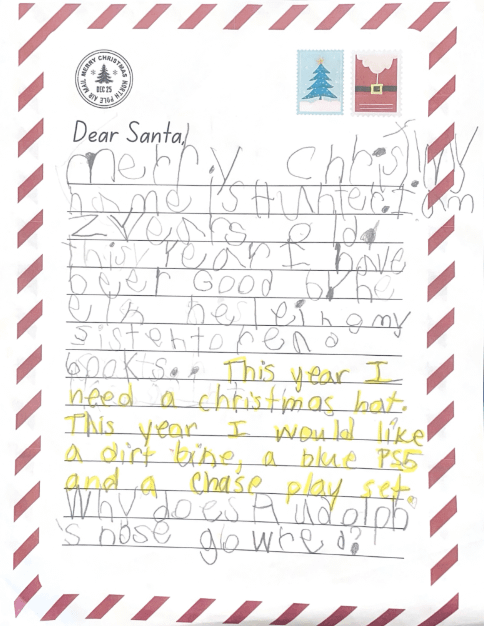 MERRY CHRISTMAS
NORTH POLE AIR MAIL
DEC 25
Dear Santa,
Merry Christ. My
name Is Hunter. I am
7 years old.
this year I have
been Good by he
my
sister to
books.. This year I
need a christmas hat.
This year I would like
a dirt bine, a blue PS5
and a Chase play set.
Why does Rudolph
's nose go wred?